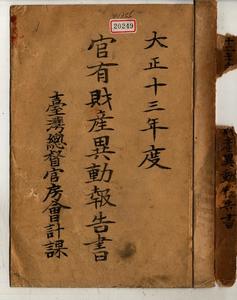 20249
大正十三年度
官有財產異動報告書
臺灣總督官房會計課